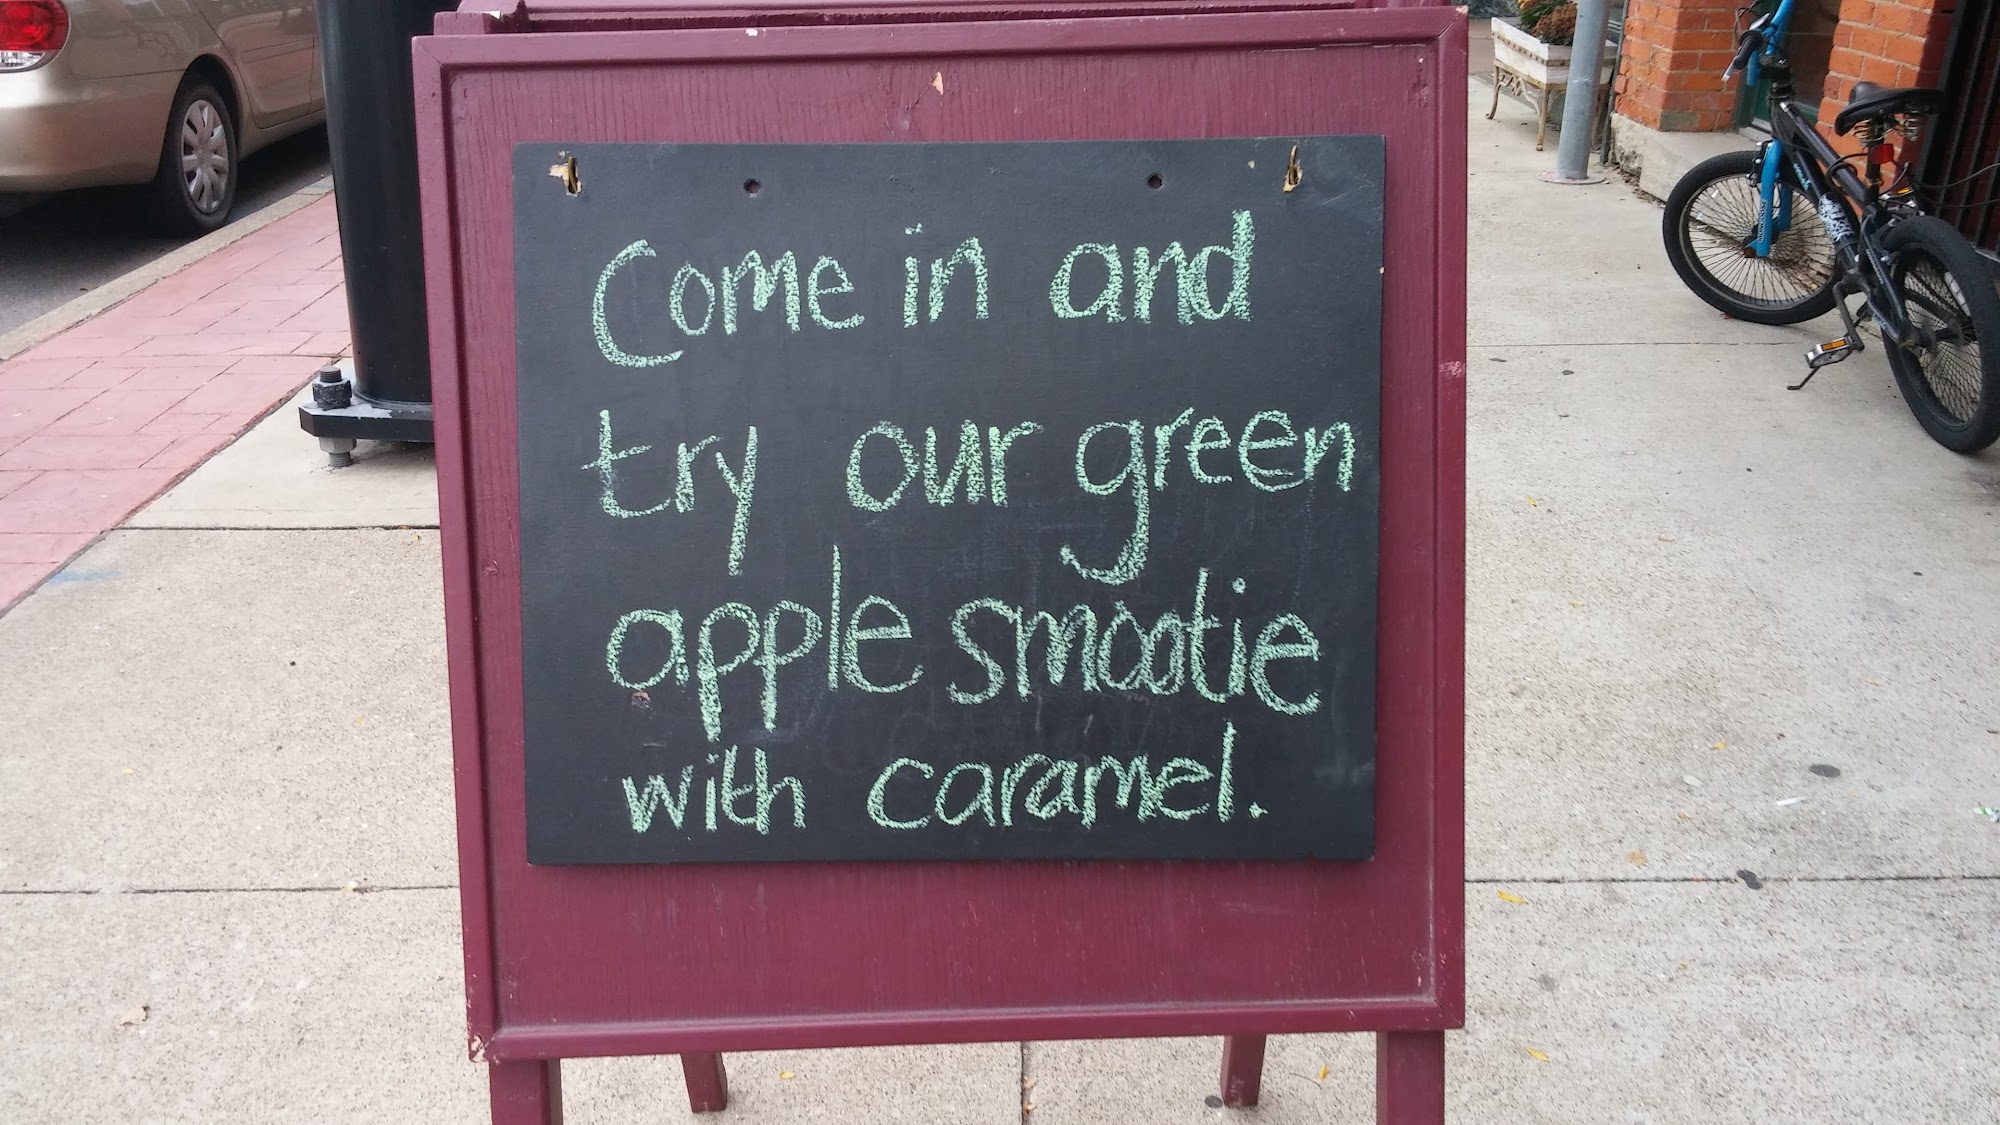 Come in and
try our green
apple smootie
with caramel.